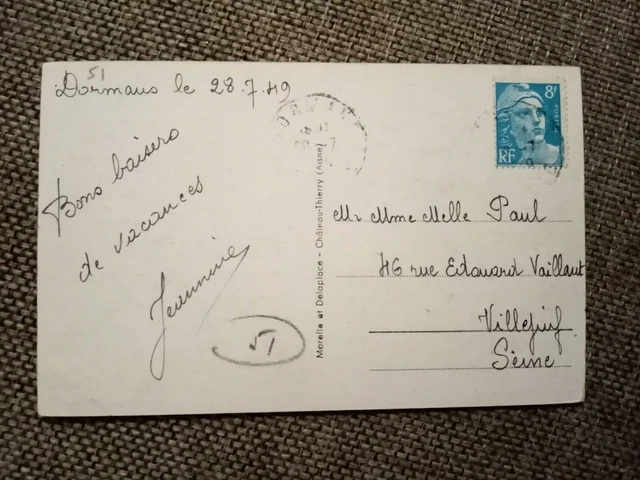 51
Dormans le 28.7.49
Bons baisers
de vacances
Jeannine
51
Morelle et Delaplace - Château-Thierry (Aisne)
8F
POSTES
RF
DORMANS
Mr Mme Melle Paul
46 rue Edouard Vaillant
Villejuif
Seine